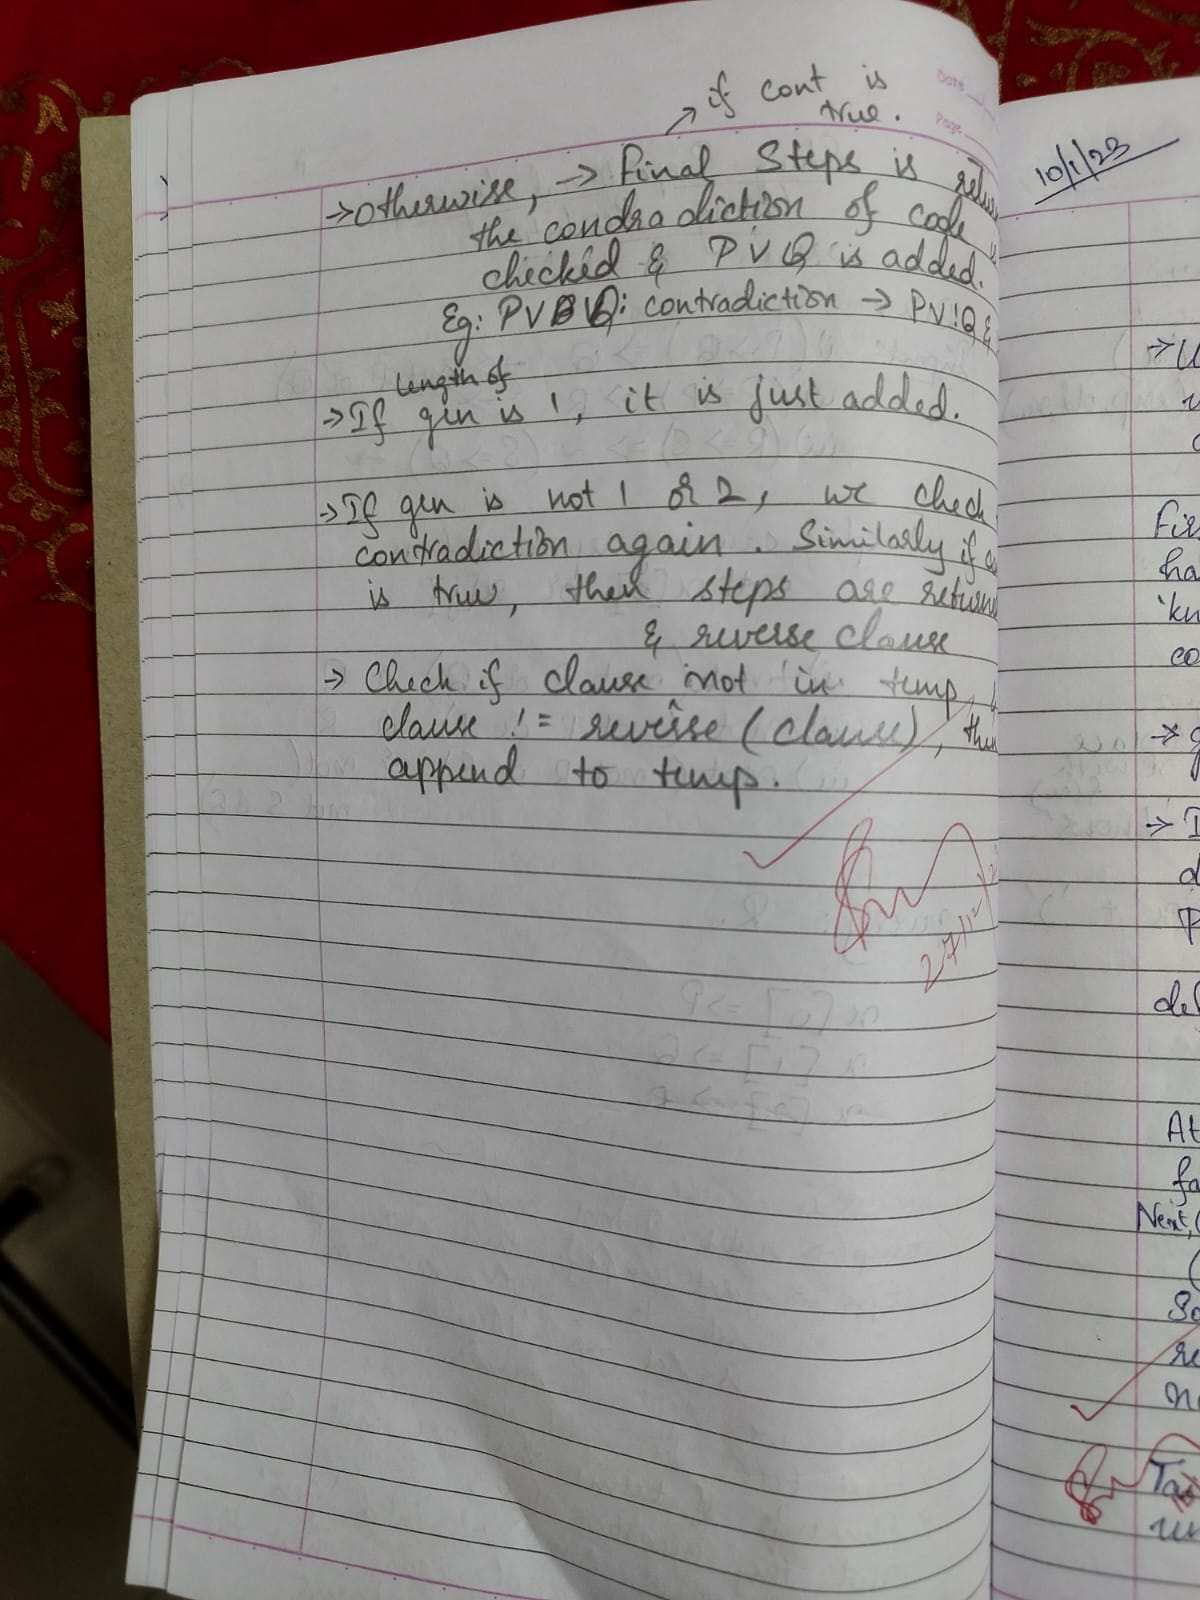 Date
Page
if cont is
true.
→ Otherwise, → Final Steps is
the condradiction of code
checked & P V Q is added.
Eg: P V Q: contradiction → P V !Q &
length of
→ If gen is 1, it is just added.
→ If gen is not 1 or 2, we check
contradiction again. Similarly if
is true, then steps are return
& reverse clause
→ Check if clause not in temp,
clause != reverse (clause), then
append to temp.
27/12/
10/1/23
Fir
ha
'kn
co
→ g
→ I
d
P
def
At
fa
Next,
So
re
n
Ta